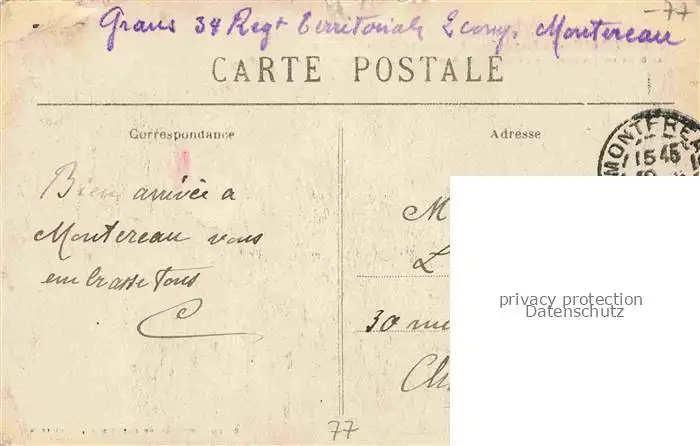 -77
Grans 34 Regt Territorial 2 comp. Montereau
CARTE POSTALE
Correspondance
Adresse
MONTEREA
15 45
Bien arrivée à
Montereau vous
embrasse Tous
M
L
30 rue
Ch
privacy protection
Datenschutz
77